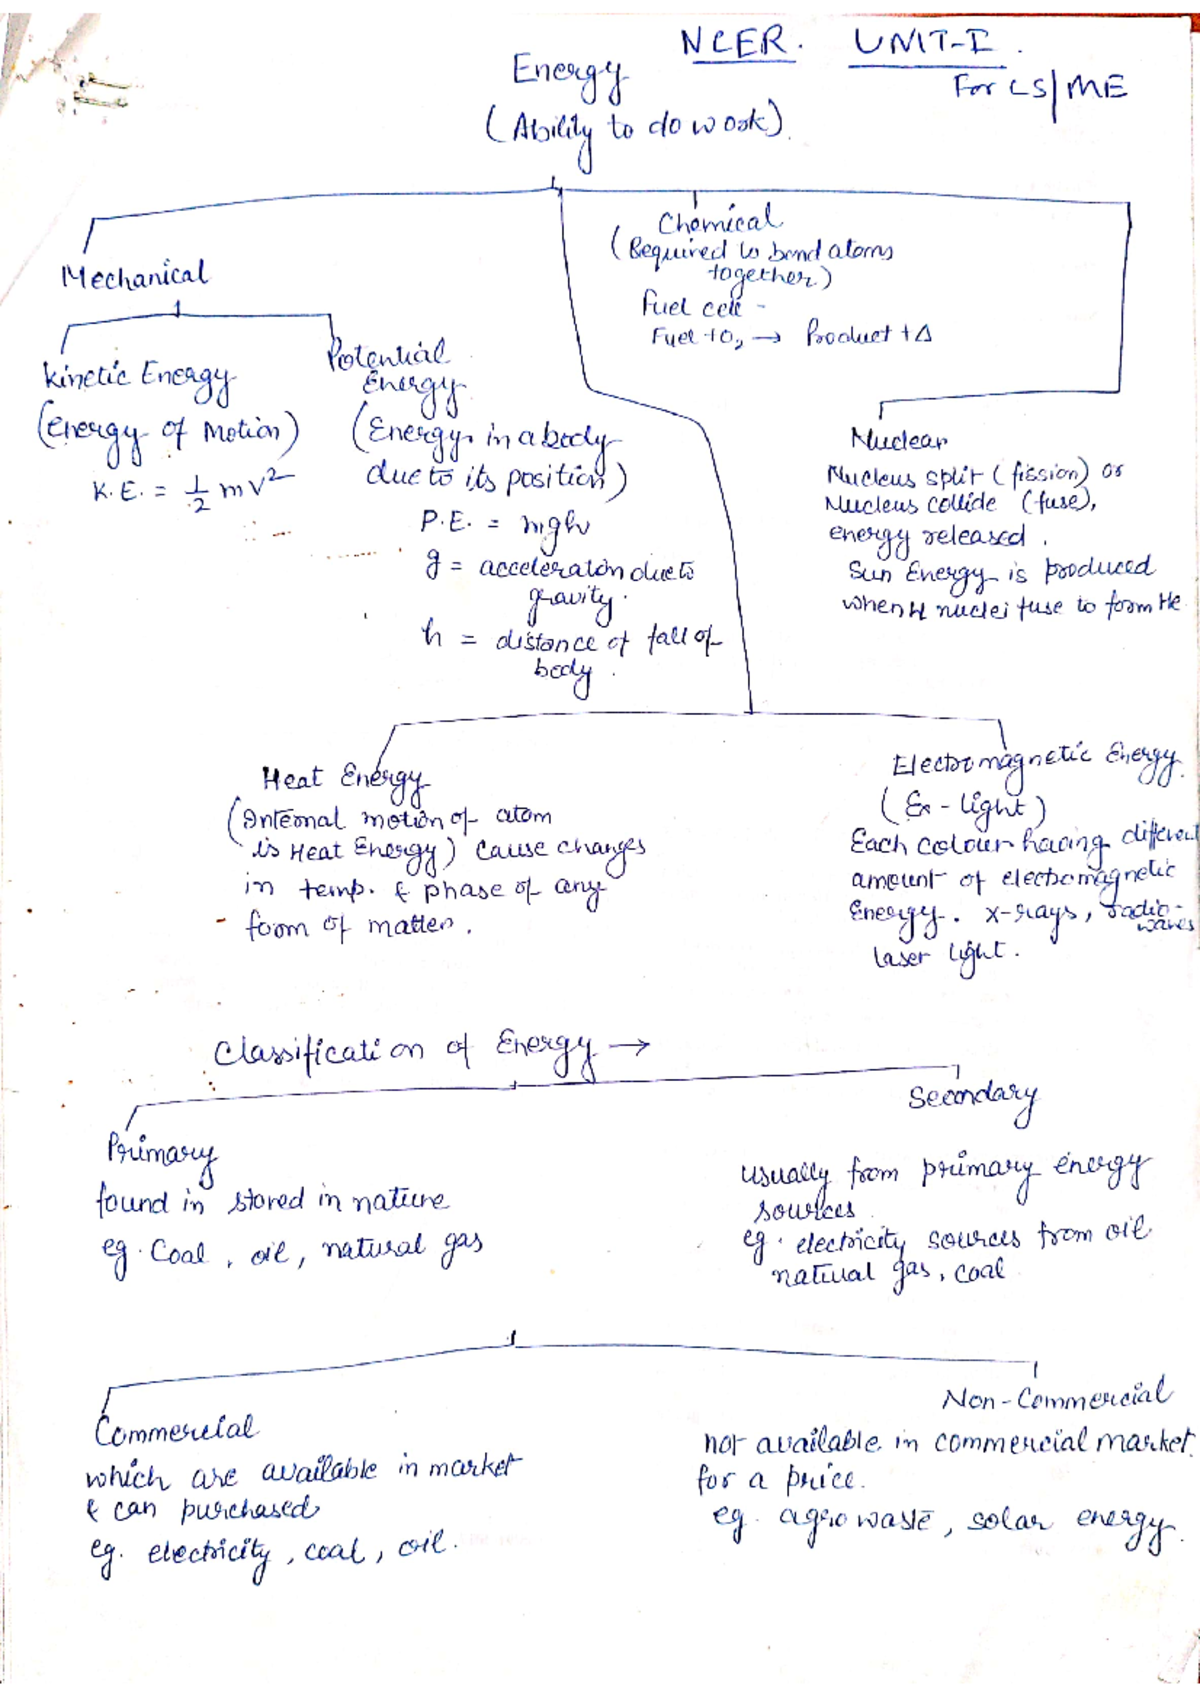 NCER. UNIT-I.
For CS/ME
Energy
(Ability to do work).
Mechanical
Kinetic Energy
(Energy of Motion)
K.E. = 1/2 mv²
Potential
Energy
(Energy in a body
due to its position)
P.E. = mgh
g = acceleration due to
gravity.
h = distance of fall of
body.
Chemical
(Required to bond atoms
together)
Fuel cell -
Fuel + O₂ → Product + Δ
Nuclear
Nucleus split (fission) or
Nucleus collide (fuse),
energy released.
Sun Energy is produced
when H nuclei fuse to form He
Heat Energy
(Internal motion of atom
is Heat Energy) cause changes
in temp. & phase of any
form of matter.
Electromagnetic Energy.
(Ex - light)
Each colour having different
amount of electromagnetic
Energy. X-rays, radio-
waves
laser light.
Classification of Energy →
Primary
found in stored in nature
eg. Coal, oil, natural gas
Secondary
usually from primary energy
sources.
eg. electricity sources from oil
natural gas, coal
Commercial
which are available in market
& can purchased
eg. electricity, coal, oil.
Non-Commercial
not available in commercial market.
for a price.
eg. agro waste, solar energy.